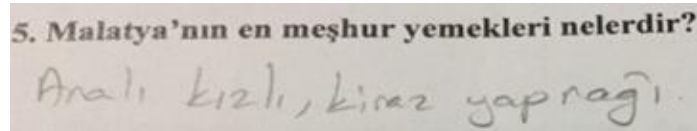 5. Malatya'nın en meşhur yemekleri nelerdir?
Analı kızlı, kiraz yaprağı.